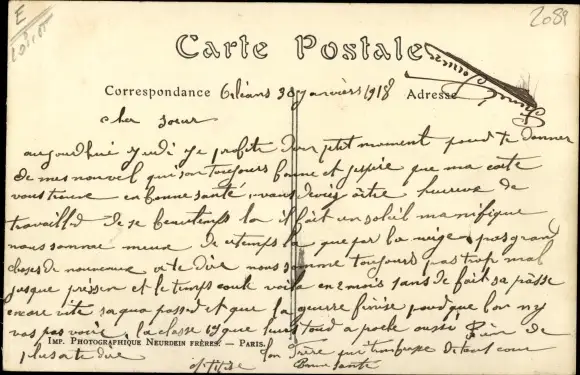 E
2089
Carte Postale
Correspondance Orléans 3 janviers 1918 Adresse
cher soeur
aujourdhui jeudi je profite d'un petit moment pour te donner
de mes nouvel qui son toujours bonne et jespère que ma carte
vous trouve en bonne santé, vous devois aitre heureux de
travaillé de se beautemps la il fait un soleil manifique
nous somme mieux de cetemps la que par la neige, pas grand
choses de nouveaux a te dire nous somme toujours pas trop mal
jusque présen et le temps coule voila en 2 mois sans de fait sa pàsse
encore vite sa qua passed et que la guerre finise pourque lon ny
vas pas voir, la classe 19 que leurs tour aproche aussi Rien de
plus a te dire
IMP. PHOTOGRAPHIQUE NEURDEIN FRÈRES. — PARIS.
ton frère qui tembrasse de tout coeur
Bonne santé